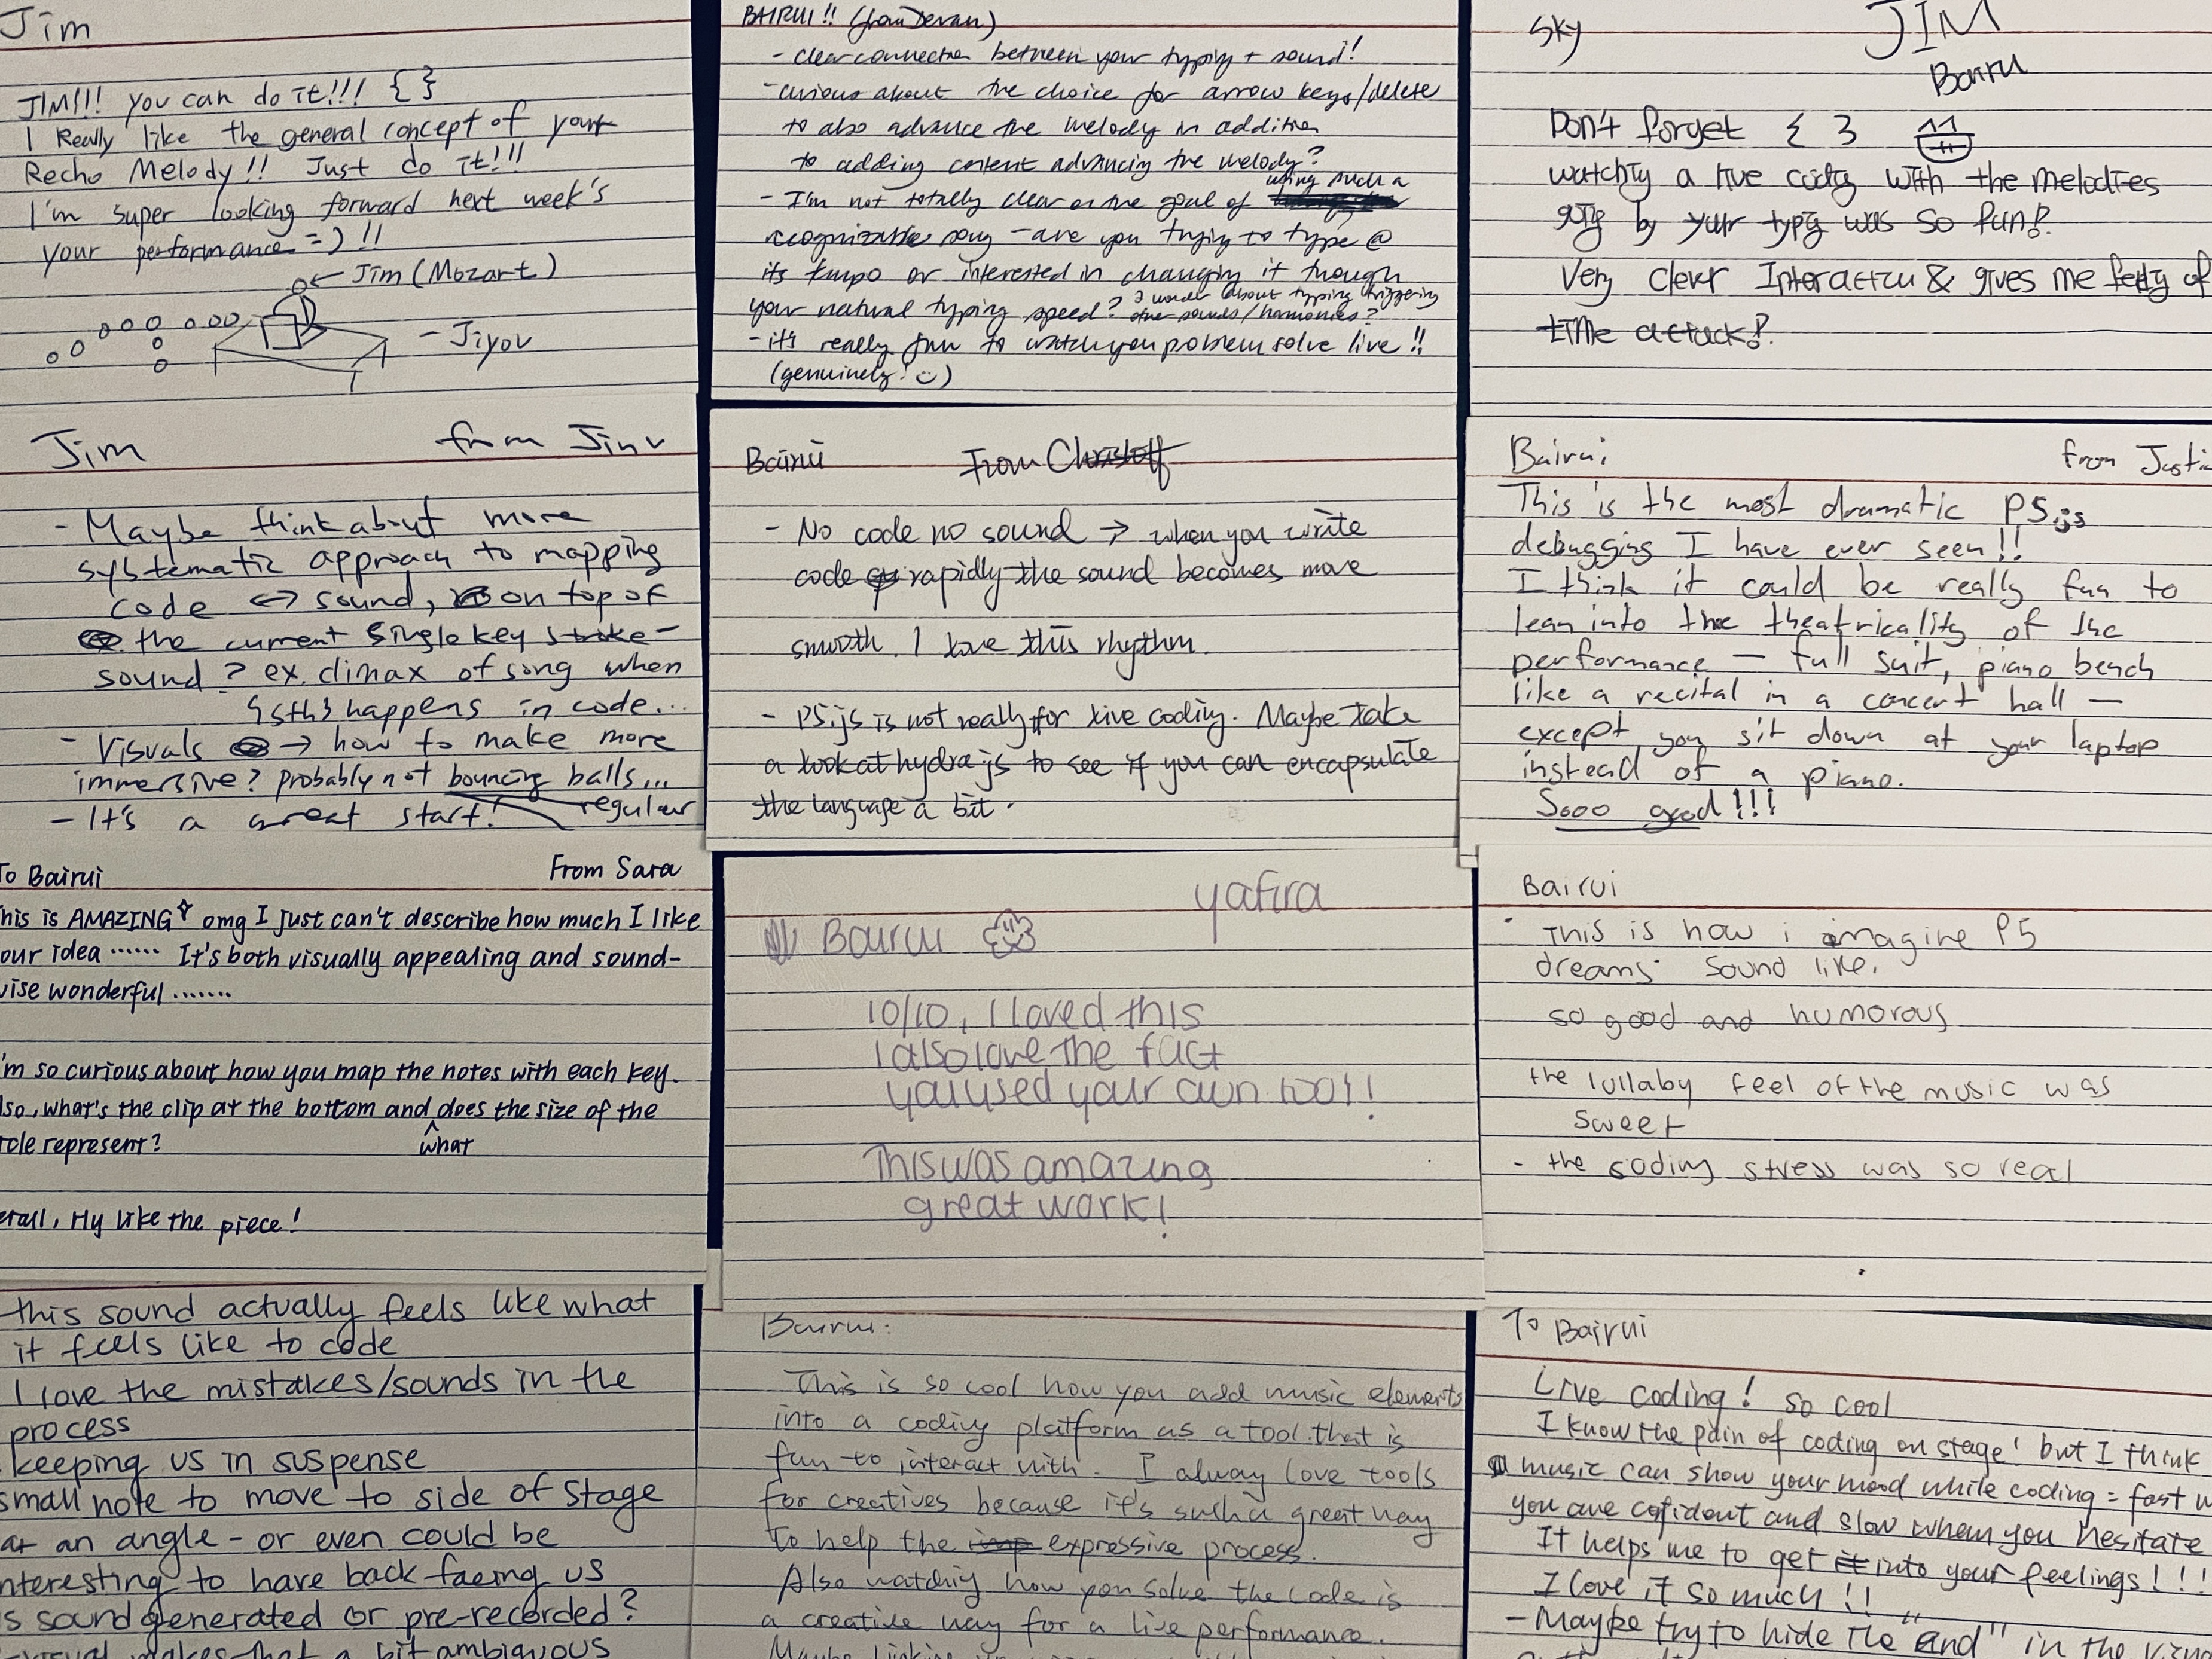 Jim
JIM!!! you can do it!!! { }
I Really like the general concept of your
Recho Melody!! Just do it!!!
I'm super looking forward next week's
your performance =) !!
← Jim (Mozart)
- Jiyou
BAIRUI!! (from Devan)
- clear connection between your typing + sound!
- curious about the choice for arrow keys/delete
to also advance the melody in addition
to adding content advancing the melody?
using such a
- I'm not totally clear on the goal of
recognizable song - are you trying to type @
its tempo or interested in changing it though
your natural typing speed? I wonder about typing triggering
other sounds/harmonies?
- it's really fun to watch you problem solve live !!
(genuinely! :))
Sky
JIM
Bairu
Don't forget { }
watchig a live codig with the melodies
goig by your typig was so fun!
Very clever Interaction & gives me feelig of
time attack!
Jim from Jinu
- Maybe think about more
systematic approach to mapping
code ↔ sound, on top of
the current single key strike -
sound? ex. climax of song when
{sth} happens in code...
- Visuals → how to make more
immersive? probably not bouncing balls...
regular
- It's a great start!
Bairui From Christoff
- No code no sound → when you write
code rapidly the sound becomes more
smooth. I love this rhythm.
- P5.js is not really for live coding. Maybe take
a look at hydra js to see if you can encapsulate
the language a bit.
Bairui from Justin
This is the most dramatic P5.js
debugging I have ever seen!!
I think it could be really fun to
lean into the theatricality of the
performance - full suit, piano bench
like a recital in a concert hall -
except you sit down at your laptop
instead of a piano.
Sooo good!!!
To Bairui From Sara
his is AMAZING omg I just can't describe how much I like
our idea ...... It's both visually appealing and sound-
wise wonderful .......
'm so curious about how you map the notes with each key.
lso, what's the clip at the bottom and does the size of the
what
rcle represent?
erall, Hy like the piece!
yafira
Bairui
10/10, I loved this
I also love the fact
you used your own tool!
This was amazing
great work!
Bairui
· This is how i imagine P5
dreams sound like.
so good and humorous
the lullaby feel of the music was
sweet
- the coding stress was so real
this sound actually feels like what
it feels like to code
I love the mistakes/sounds in the
process
keeping us in suspense
small note to move to side of stage
at an angle - or even could be
nteresting to have back facing us
s sound generated or pre-recorded?
makes that a bit ambiguous
Bairui:
This is so cool how you add music elements
into a coding platform as a tool that is
fun to interact with. I alway love tools
for creatives because it's such a great way
to help the expressive process.
Also watchig how you solve the code is
a creative way for a live performance.
Maybe linking
To Bairui
Live coding! so cool
I know the pain of coding on stage! but I think
music can show your mood while coding = fast w
you are cofident and slow when you hesitate
It helps me to get into your feelings!!!
I love it so much!!
- Maybe try to hide the "end" in the